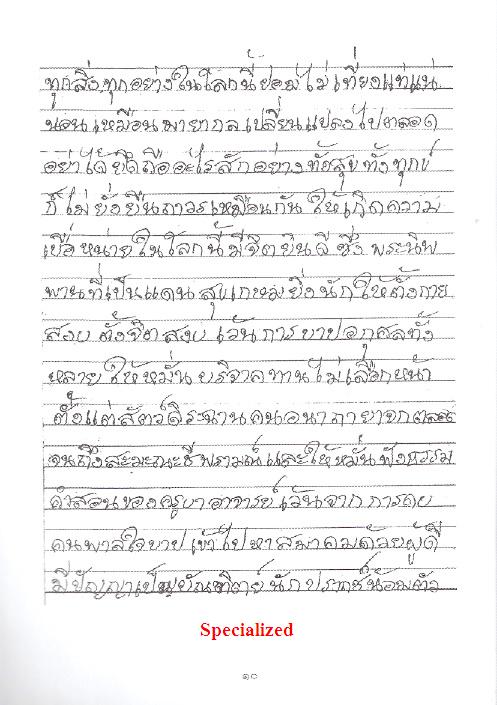 ทุกสิ่งทุกอย่างในโลกนี้ย่อมไม่เที่ยงแท้แน่
นอนเหมือนมายากลเปลี่ยนแปลงไปตลอด
อย่าได้ยึดถืออะไรสักอย่าง ทั้งสุข ทั้งทุกข์
ก็ไม่ยั่งยืนถาวรเหมือนกัน ให้เกิดความ
เบื่อหน่ายในโลกนี้ มีจิตยินดีซึ่งพระนิพ
พานที่เป็นแดนสุขเกษมยิ่งนัก ให้ตั้งกาย
สงบ ตั้งจิตสงบ เว้นการบาปอกุศลทั้ง
หลาย ให้หมั่นบริจาคทานไม่เลือกหน้า
ตั้งแต่สัตว์ดิระฉาน คนอนาถายาจกตลอด
จนถึงสะมะณะชีพราหมณ์ และให้หมั่นฟังธรรม
คำสอนของครูบาอาจารย์ เว้นจากการคบ
คนพาลใจบาป เข้าไปหาสมาคมด้วยผู้ดี
มีปัญญาเป็นบัณฑิตย์นักปราชญ์น้อมตัว
Specialized
๑๐